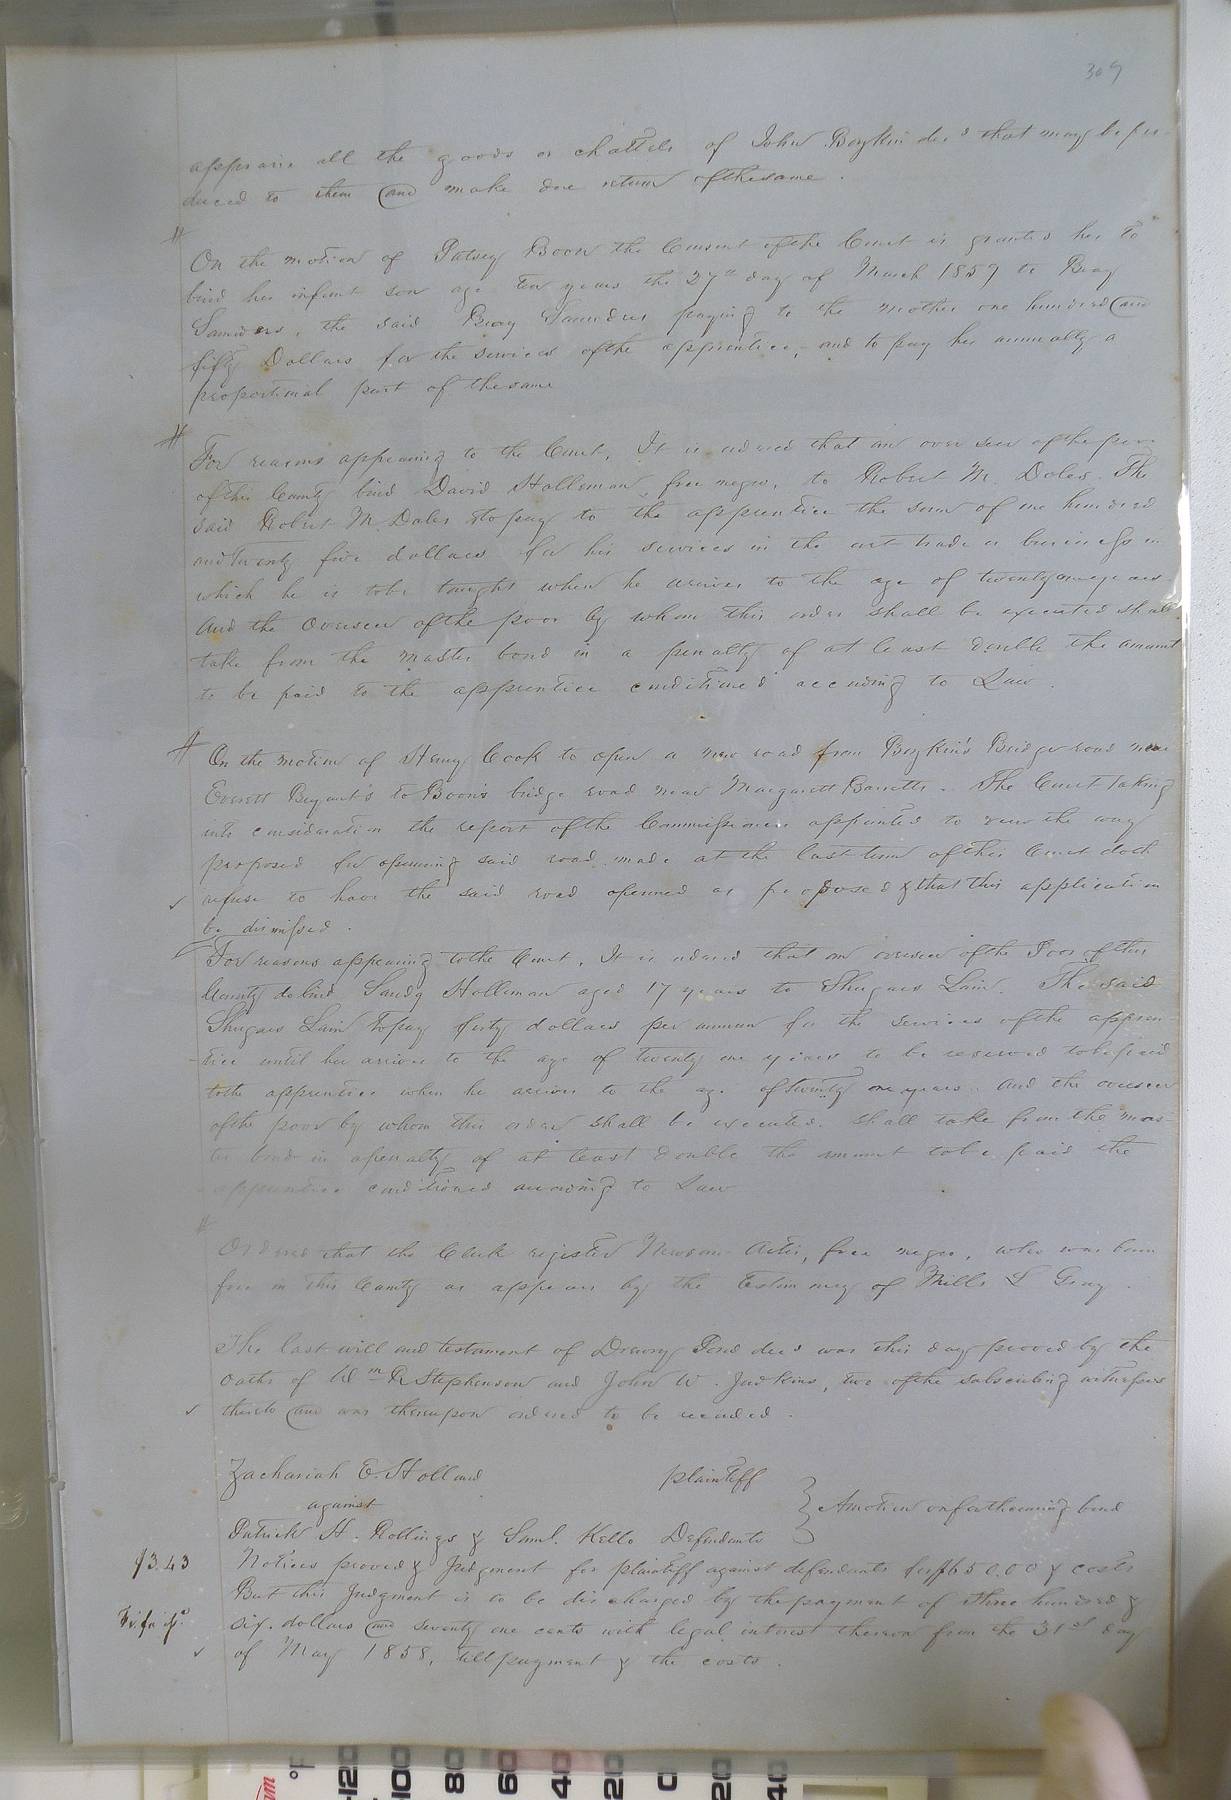 309
appraise all the goods or chattels of John Boykin dec'd that may be pro-
duced to them and make due return of the same.
#
On the motion of Patsey Boon the Consent of the Court is granted her to
bind her infant son age ten years the 27th day of March 1859 to Bray
Saunders, the said Bray Saunders paying to the mother one hundred and
fifty Dollars for the services of the apprentice, and to pay her annually a
proportional part of the same
#
For reasons appearing to the Court, It is ordered that an over seer of the poor
of this County bind David Holleman, free negro, to Robert M. Doles. The
said Robert M Doles to pay to the apprentice the sum of one hundred
and twenty five dollars for his services in the art trade or business in
which he is to be taught when he arrives to the age of twenty one years
And the Overseer of the poor by whom this order shall be executed shall
take from the master bond in a penalty of at least double the amount
to be paid to the apprentice conditioned according to Law.
#
On the motion of Henry Cook to open a new road from Boykin's Bridge road near
Everett Bryant's to Boon's bridge road near Margarett Barretts. The Court taking
into consideration the report of the Commissioners appointed to view the way
proposed for opening said road made at the last term of this Court doth
refuse to have the said road openned as proposed & that this application
be dismissed.
For reasons appearing to the Court, It is ordered that an overseer of the Poor of this
County do bind Sandy Holleman aged 17 years to Shugars Lain. The said
Shugars Lain to pay forty dollars per annum for the services of the appren-
-tice until he arrives to the age of twenty one years to be reserved to be paid
to the apprentice when he arrives to the age of twenty one years. And the overseer
of the poor by whom this order shall be executed. shall take from the mas-
ter bond in a penalty of at least double the amount to be paid the
apprentice conditioned according to Law
#
Ordered that the Clerk register Newsom Artis, free negro, who was born
free in this County as appears by the Testimony of Mills L Gray.
The last will and testament of Drewry Pond dec'd was this day proved by the
oaths of Wm R Stephenson and John W. Judkins, two of the subscribing witnesses
thereto and was thereupon ordered to be recorded.
Zachariah E. Holland plaintiff
against
A motion on forthcoming bond
Patrick H. Rollings & Saml. Kello Defendants
$3.43
Notices proved & Judgment for plaintiff against defendants for $650.00 & costs
But this Judgment is to be discharged by the payment of Three hundred &
Fi. fa
six dollars and seventy one cents with legal interest thereon from the 31st day
of May 1858, till payment & the costs.
°F
120
100
80
60
40
20
0
20
40